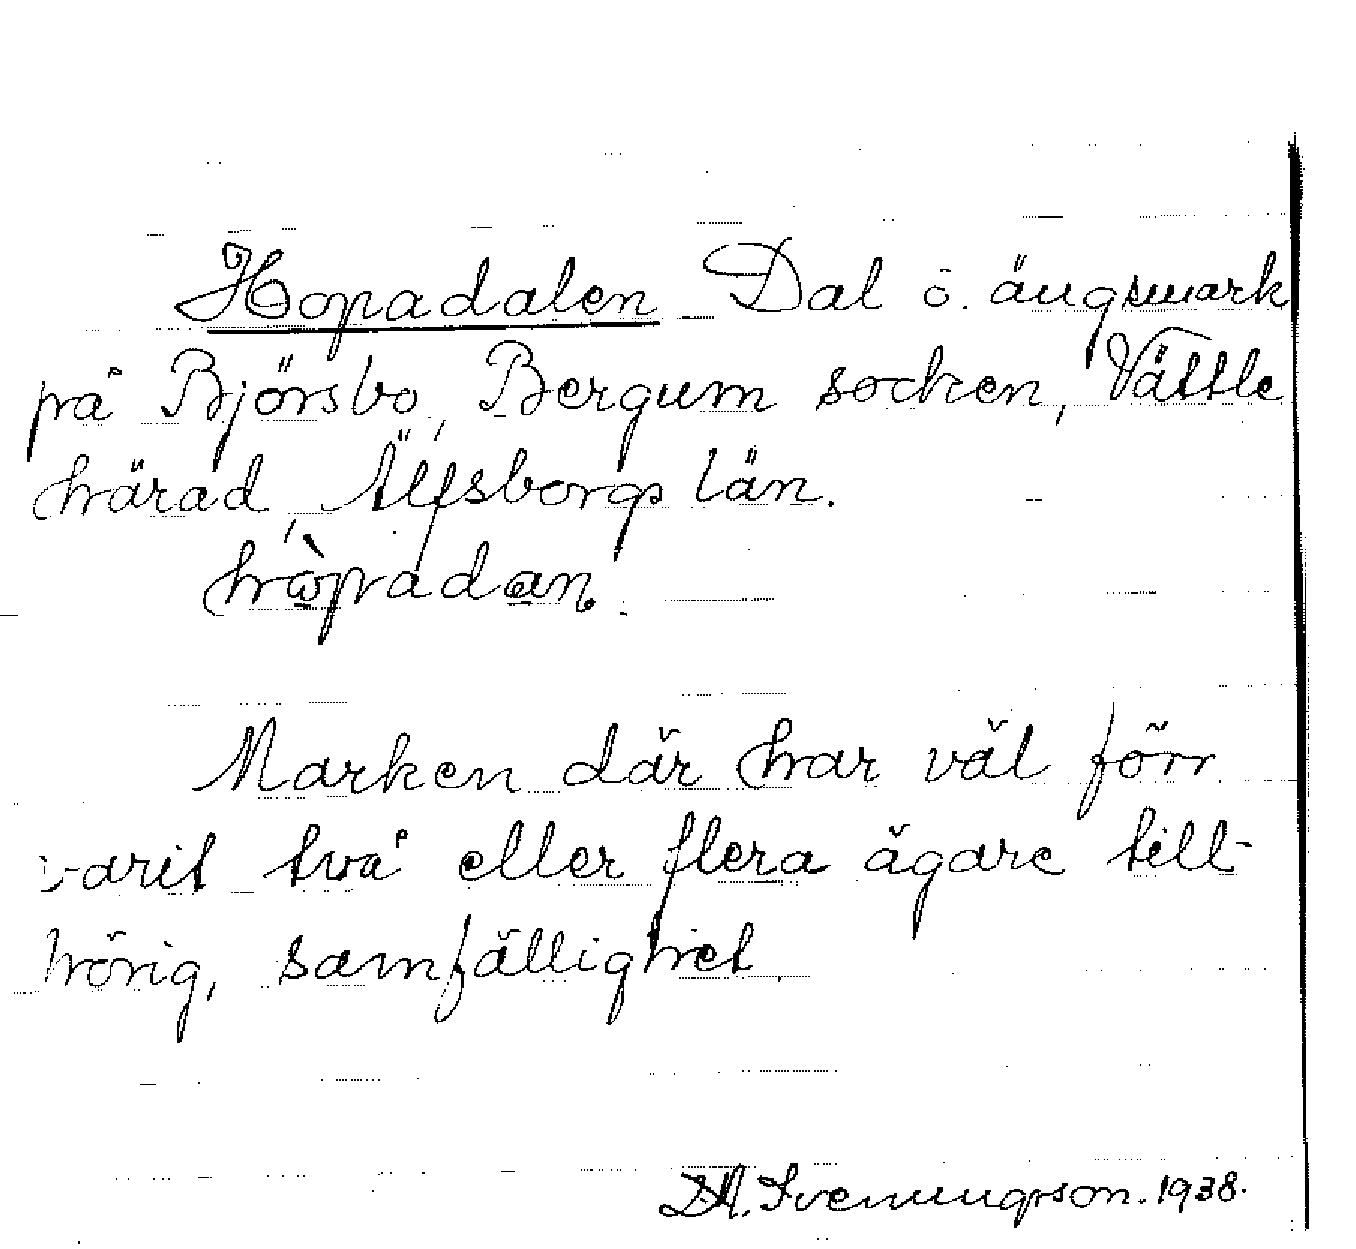 Hopadalen Dal o. ängsmark
på Björsbo, Bergum socken, Vättle
härad, Älfsborgs län.
hòpadan.
Marken där har väl förr
varit två eller flera ägare till-
hörig, samfällighet.
D.A. Svenningson. 1938.